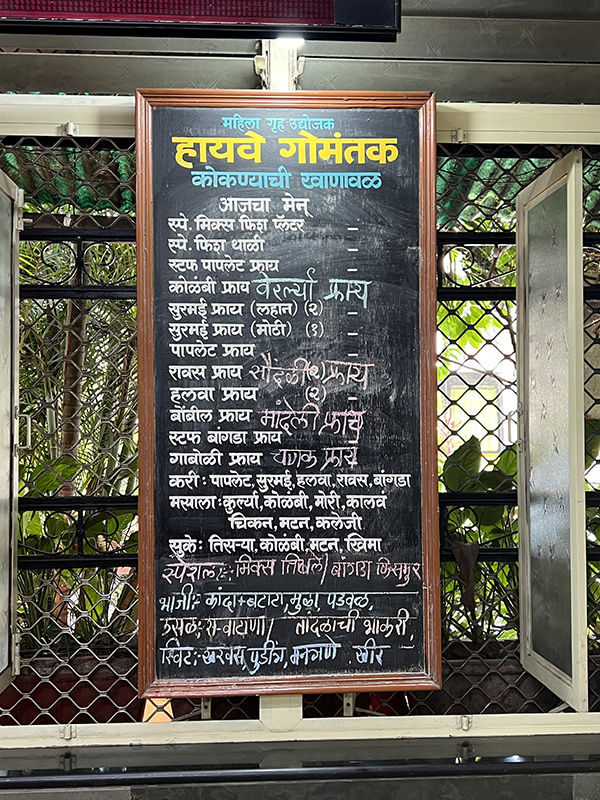 महिला गृह उद्योजक
हायवे गोमंतक
कोकण्याची खाणावळ
आजचा मेनू
स्पे. मिक्स फिश प्लॅटर –
स्पे. फिश थाळी –
स्टफ पापलेट फ्राय –
कोळंबी फ्राय वेरल्या फ्राय
सुरमई फ्राय (लहान) (२) –
सुरमई फ्राय (मोठी) (१) –
पापलेट फ्राय –
रावस फ्राय सौदळी फ्राय
हलवा फ्राय (२) –
बोंबील फ्राय मांदेली फ्राय
स्टफ बांगडा फ्राय –
गाबोळी फ्राय चणक फ्राय
करी : पापलेट, सुरमई, हलवा, रावस, बांगडा
मसाला : कुर्ल्या, कोळंबी, मोरी, कालवं
चिकन, मटन, कलेजी
सुके : तिसऱ्या, कोळंबी, मटन, खिमा
स्पेशल :- मिक्स / बांगडा
भाजी :- कांदा+बटाटा, मुळा, पडवळ,
/ तांदळाची भाकरी,
स्विट :- खरवस, पुडींग, मनगणे खीर